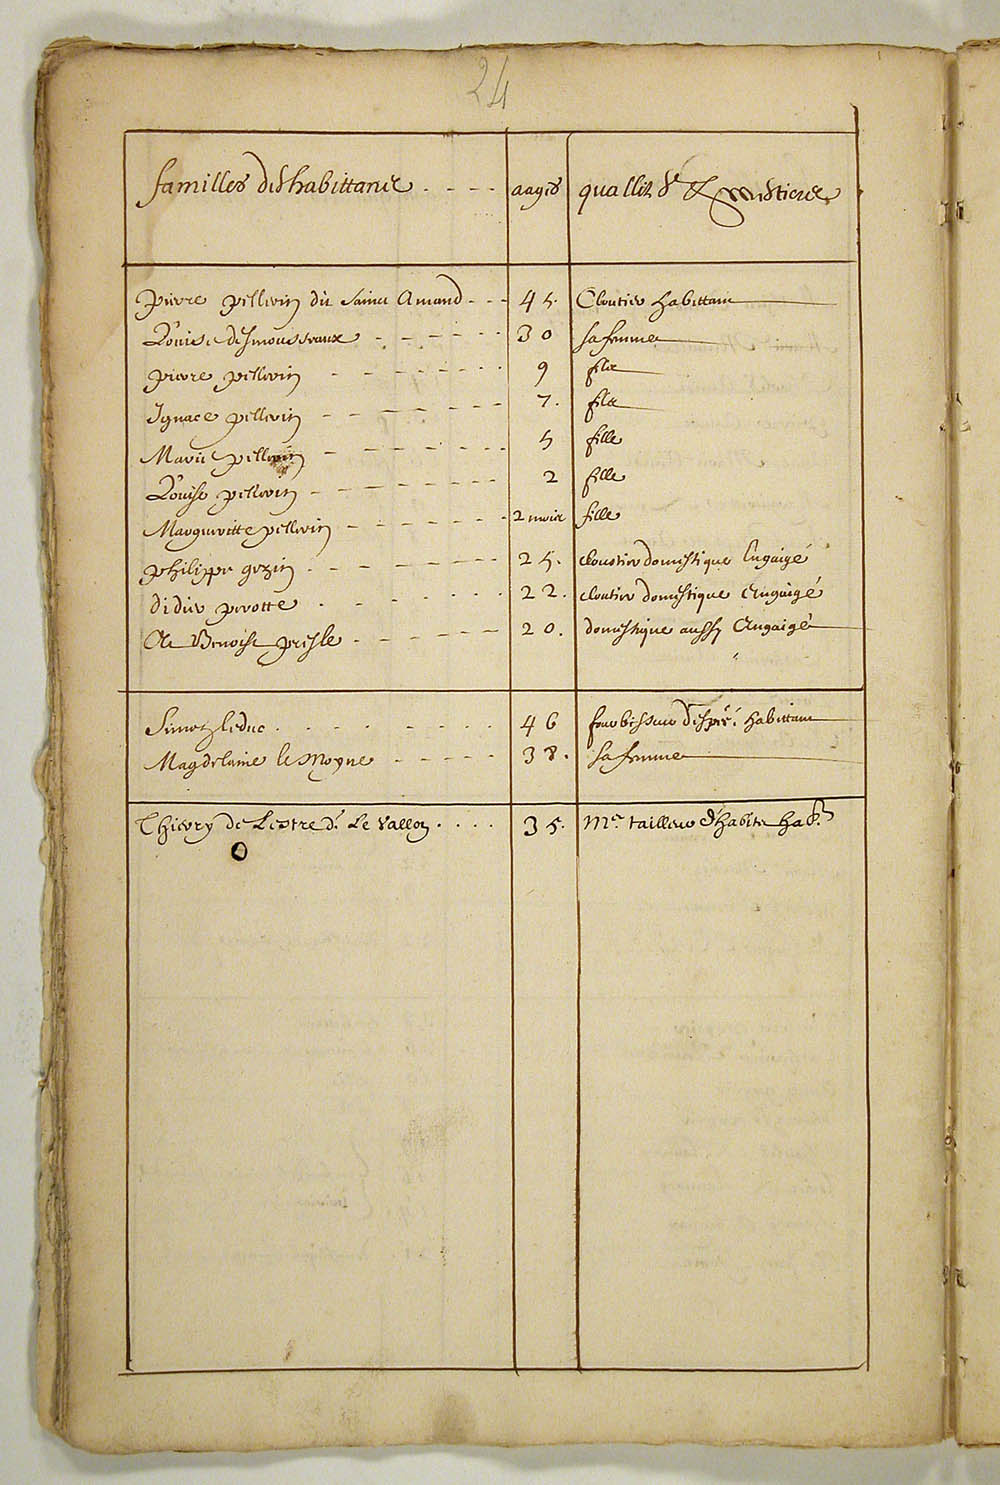 24
familles des habittans . . . . aages quallitez & mestiers
Pierre Pellerin dit Sainct Amand - - - 45. Cloutier habittant
Louise desmousseaux - - - - - 30 sa femme
Pierre Pellerin - - - - - - - 9 filz
Ignace Pellerin - - - - - - - 7. filz
Marie Pellerin - - - - - - - 5 fille
Louise Pellerin - - - - - - - 2 fille
Margueritte pellerin - - - - - - 2 mois fille
Philippe gezin . - - - - - - - 25. Cloustier domestique Engaigé
didier perotte . . - - - - - - 22. cloutier domestique engaigé
Et Benoist presle - - - - - - 20. domestique aussy Engaigé
Simon leduc . . . . . . . . . 46 fourbisseur d'espées. habittant
Magdelaine le Moyne - - - - - 38. sa femme
Thierry de Lestre dt. Le Vallon . . . . 35. Mre. tailleur d'habits hab.